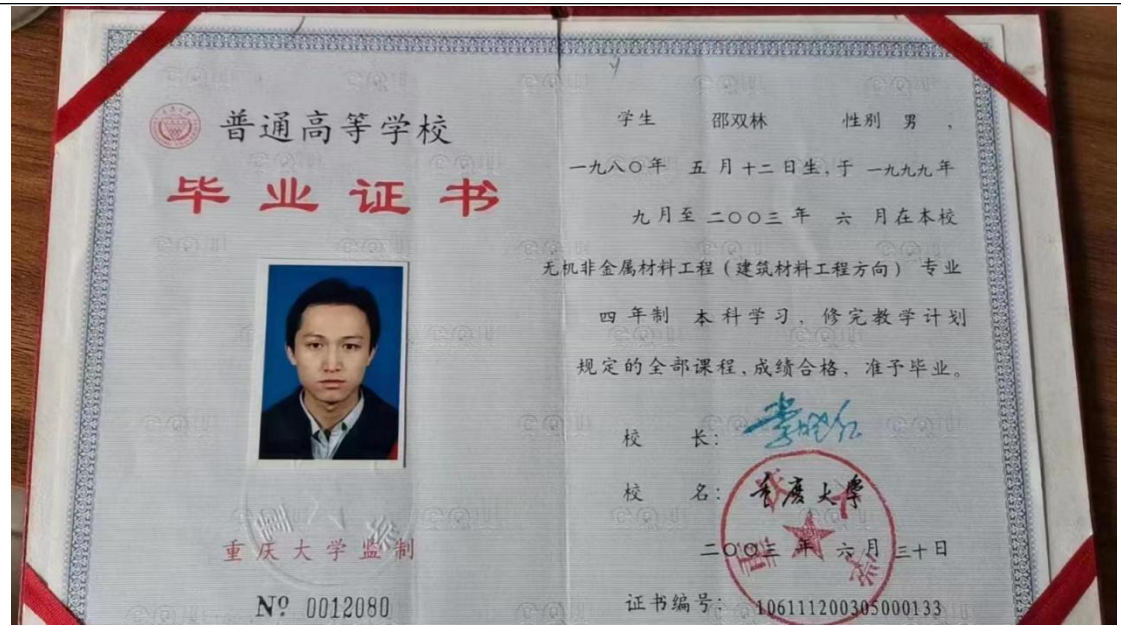 普通高等学校
毕业证书
重庆大学监制
Nº 0012080
学生 邵双林 性别 男 ,
一九八〇年 五月十二日生,于 一九九九年
九月至二〇〇三年 六 月在本校
无机非金属材料工程(建筑材料工程方向) 专业
四年制 本科学习,修完教学计划
规定的全部课程,成绩合格,准予毕业。
校 长:
校 名: 重庆大学
二〇〇三年 六月三十日
证书编号: 106111200305000133